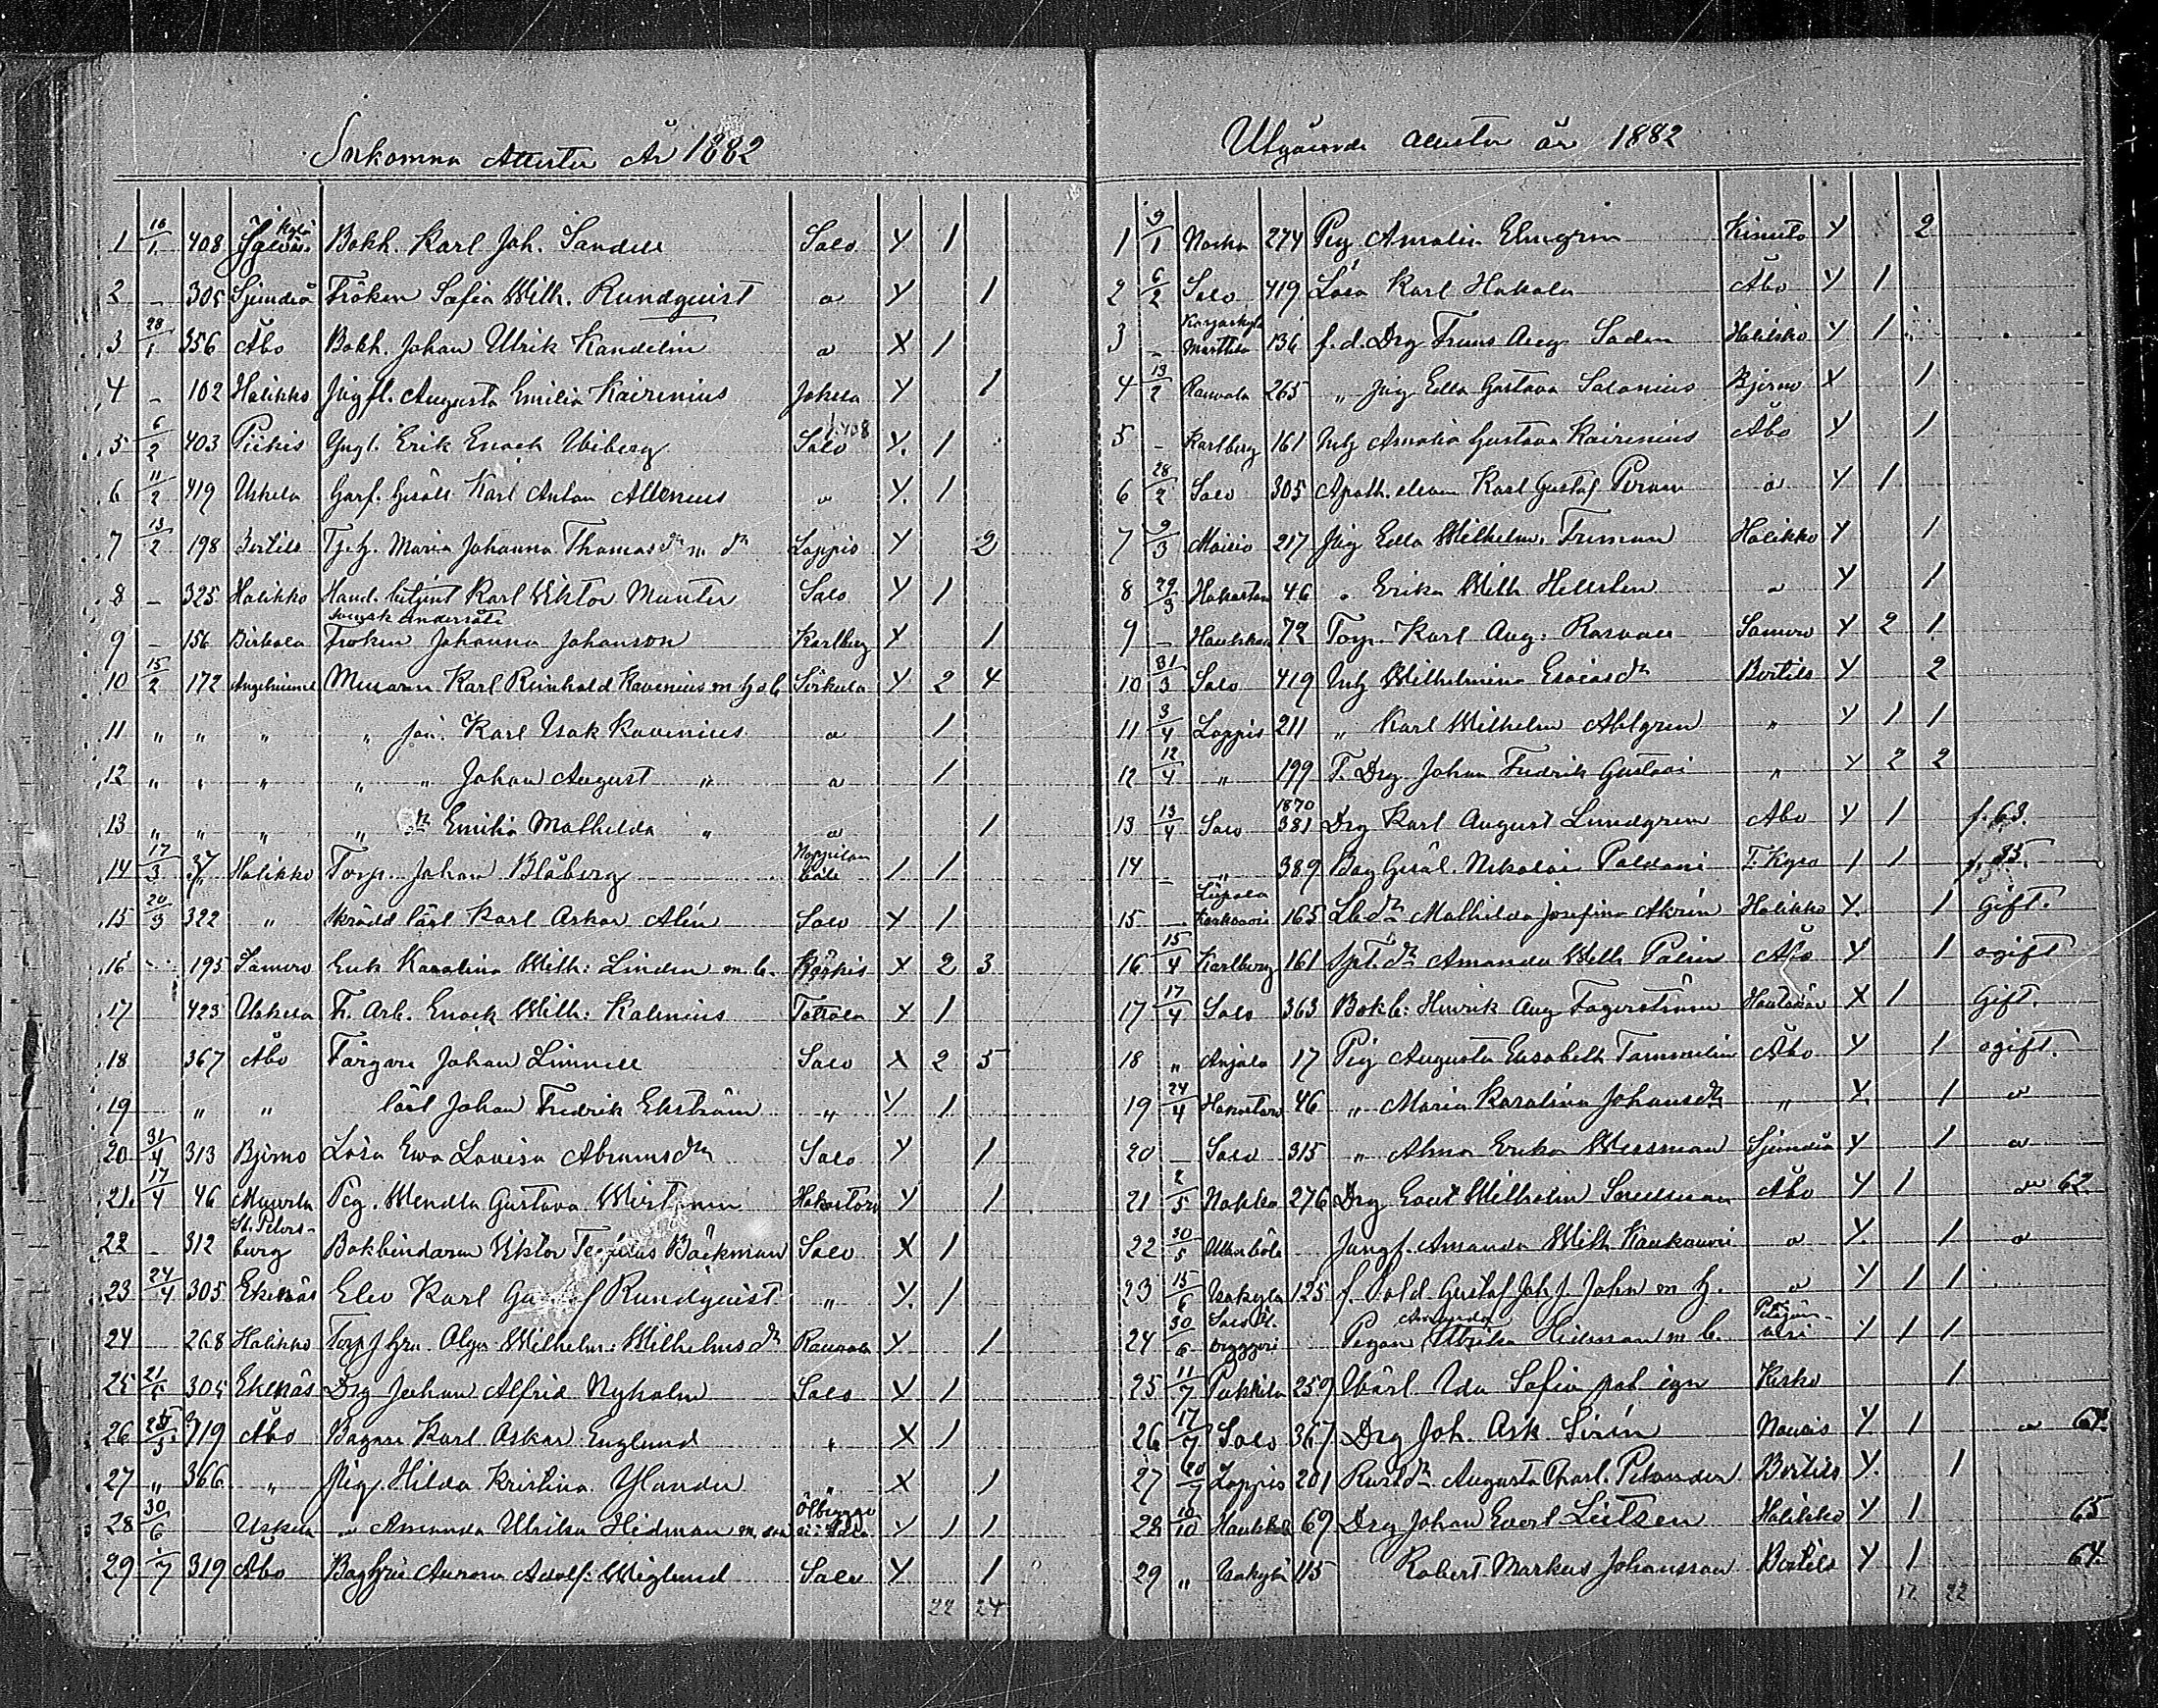 Inkomna Attester År 1882
1 16/1 408 Kylä Bokh. Karl Joh. Sandell Salo Y 1
2 – 305 Sjundeå Fröken Sofia Wilh. Rundquist a Y 1
3 28/1 356 Åbo Bokh. Johan Ulrik Kandelin a X 1
4 – 102 Halikko Jügfl. Augusta Emilia Kairenius Jokela Y 1
5 6/2 403 Piikis Yngl. Erik Enoch Wiberg Salo Y. 1
6 11/2 419 Uskela Garf. Gesäll Karl Anton Allenius a Y. 1
7 13/2 198 Bertils Maria Johanna Thomasdr m dr Loppis Y 2
8 – 325 Halikko Hand. betjent Karl Viktor Munter Salo Y 1
svensk undersåte
9 – 156 Birkala Fröken Johanna Johanson Karlberg Y 1
10 15/2 172 Angelniemi Muraren Karl Reinhold Kavenius m h o b Sirkula Y 2 4
11 „ „ „ „ Karl Isak Kavenius a 1
12 „ „ „ „ „ Johan August „ a 1
13 „ „ „ „ dr Emilia Mathilda „ a 1
14 17/3 37 Halikko Torp. Johan Blåberg böle 1 1
15 20/3 322 „ skrädd lärl Karl Oskar Alén Salo Y 1
16 195 Somero Enk Karolina Wilh: Linden m b. X 2 3
17 423 Uskela F. Arb. Enoch Wilh: Kalenius Tottola X 1
18 367 Åbo Färgare Johan Linnell Salo X 2 5
19 „ „ lärl Johan Fredrik Ekström „ Y 1
20 31/4 313 Bjerno Lösa Ewa Lovisa Abramsdr Salo Y 1
21. 17/4 46 Pig. Wendla Gustava Hakostaro Y 1
St. Peters-
22 – 312 burg Bokbindaren Viktor Bäckman Salo X 1
23 24/4 305 Ekenäs Elev Karl Gustaf Rundquist „ Y. 1
24 268 Halikko Wilhelm: Wilhelmsdr Rauvola Y 1
25 305 Ekenäs Drg Johan Alfrid Nyholm Salo X 1
26 Åbo Bagare Karl Oskar Englund „ X 1
27 „ 366 „ Pig. Hilda Kristina Ylander „ X 1
28 30/6 Uskela „ Amanda Ulrika Hidman m son Y 1 1
29 319 Åbo Aurora Adolf: Wiglund Salo Y 1
22 24
Utgående attester år 1882
1 9/1 274 Pig Amalia Elmgren Kimito Y 2
2 6/2 Salo 419 Lösa Karl Hakala Åbo Y 1
3 – Marttila 136 f. d. Drg Frans Aug. Soden Halikko Y 1
4 13/2 Rauvola 265 „ Pig Edla Gustava Salonius Bjerno X 1
5 – Karlberg 161 Amalia Gustava Kairenius Åbo Y 1
6 28/2 Salo 305 Apoth. eleven Karl Gustaf a Y 1
7 9/3 Moisio 217 Pig Edla Wilhelm. Friman Halikko Y 1
8 29/3 Hakostaro 46 „ Erika Wilh Hellsten a Y 1
9 – 72 Torp. Karl Aug: Somero Y 2 1
10 31/3 Salo 419 Wilhelmina Esaiasdr Bertils Y 2
11 3/4 Loppis 211 „ Karl Wilhelm Ahlgren „ Y 1 1
12 12/4 „ 199 T. Drg Johan Fredrik Gustavi „ Y 2 2
1870
13 13/4 Salo 381 Drg Karl August Lundgren Åbo Y 1 f. 63.
14 – „ 389 Bag Gesäl. Nikolai Paldani T. Kyro 1 1 f. 85.
15 – 165 Mathilda Josefina Akrén Halikko Y. 1 Gift.
16 15/4 Karlberg 161 Amanda Wilh Palin Åbo Y 1 ogift
17 17/4 Salo 363 Bokb: Henrik Aug Fagerström X 1 Gift.
18 „ Anjala 17 Pig Augusta Elisabeth Tammelin Åbo Y 1 ogift.
19 24/4 Hakostaro 46 „ Maria Karolina Johansdr „ Y. 1 a
20 – Salo 315 „ Alma Erika Wessman Sjundeå Y 1 a
21 2/5 276 Drg Evert Wilhelm Åbo Y 1 a 62.
22 30/5 Jungf. Amanda Wilh a Y. 1 a
23 15/6 Isokylä 125 f. Sold Gustaf Joh. J. John m h. a Y 1 1
Amanda
24 30/6 Pigan Ulrika Hidman m b. Y 1 1
25 11/7 Pukkila 259 Ida Sofia Kisko 1
26 17/7 Salo 367 Drg Joh. Osk Sirén Nousis Y. 1 a 64.
27 Loppis 201 Augusta Charl. Pelander Bertils Y. 1
28 10/10 69 Drg Johan Evert Leitzen Halikko Y 1 65
29 „ Isokylä 115 Robert Markus Johansson Bertils Y 1 64.
12 22